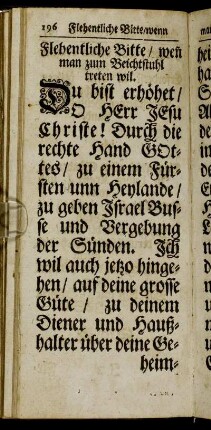 196 Flehentliche Bitte/wenn
Flehentliche Bitte / weñ
man zum Beichtstuhl
treten wil.
Du bist erhöhet/
O HErr JEsu
Christe! Durch die
rechte Hand GOt-
tes/ zu einem Für-
sten unn Heylande/
zu geben Israel Bus-
se und Vergebung
der Sünden. Ich
wil auch jetzo hinge-
hen/ auf deine grosse
Güte / zu deinem
Diener und Hauß-
halter über deine Ge-
heim-